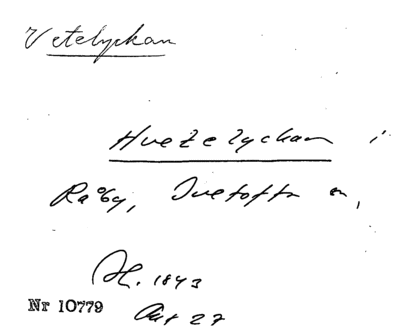 Vetelyckan
Hvetelyckan i
Råby, Tvetofta sn,
AH. 1843
Akt 27
Nr 10779